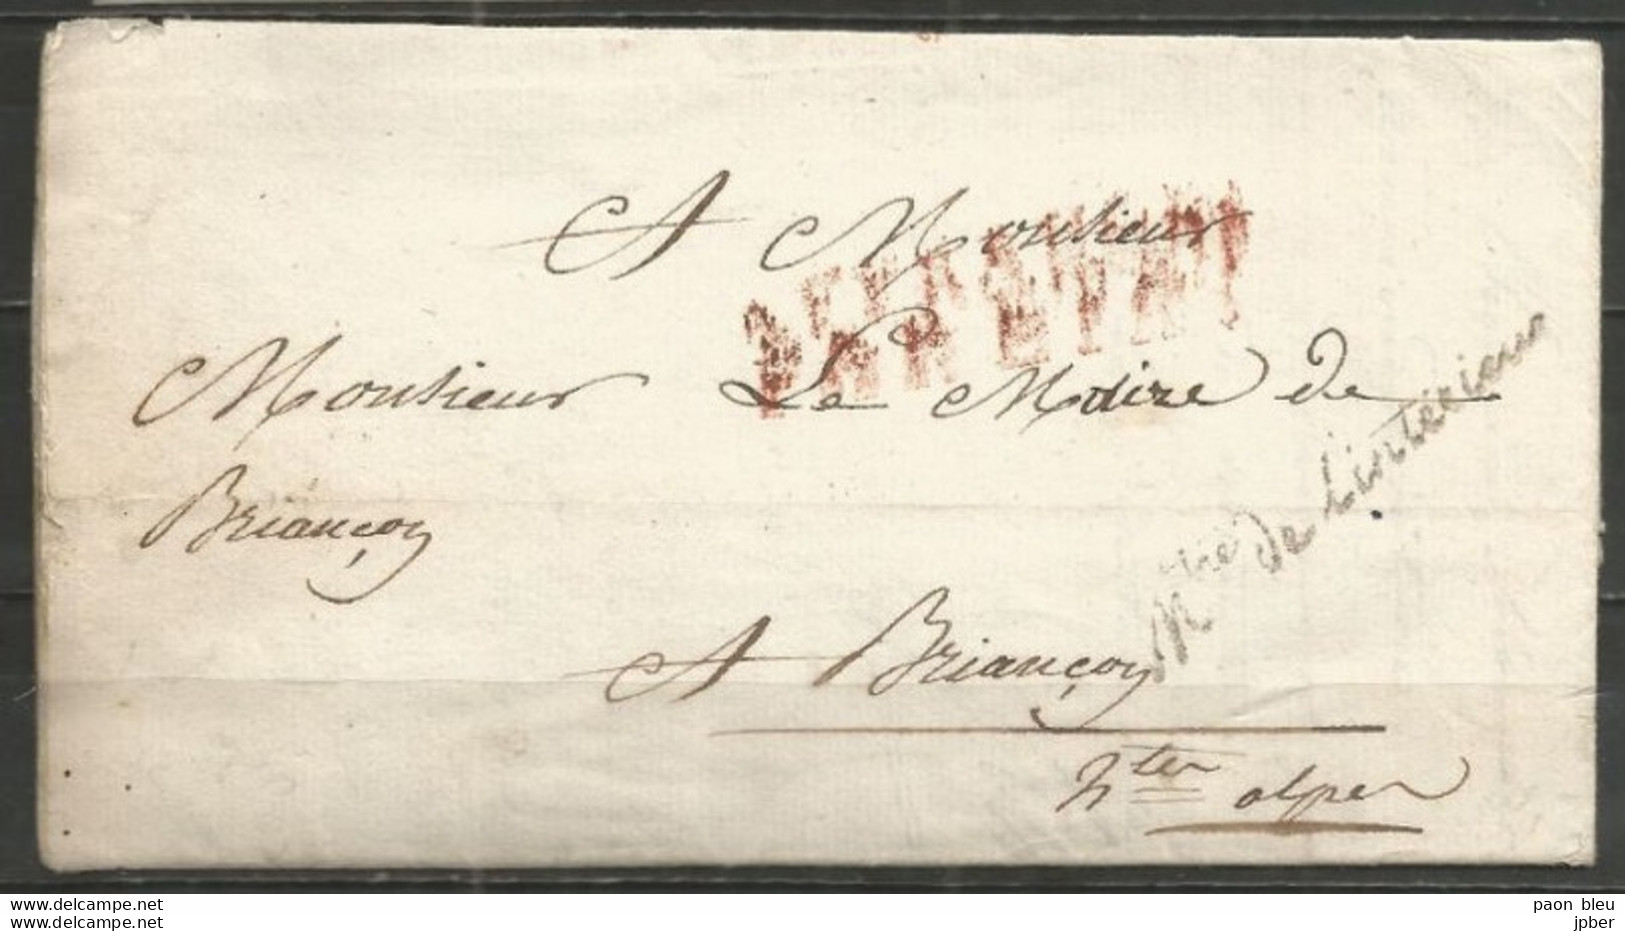 A Monsieur
Monsieur Le Maire de
Briançon
A Briançon
htes alpes
PAR ETAT
Mtrie de L'intérieur
www.delcampe.net
www.delcampe.net
paon bleu
jpber